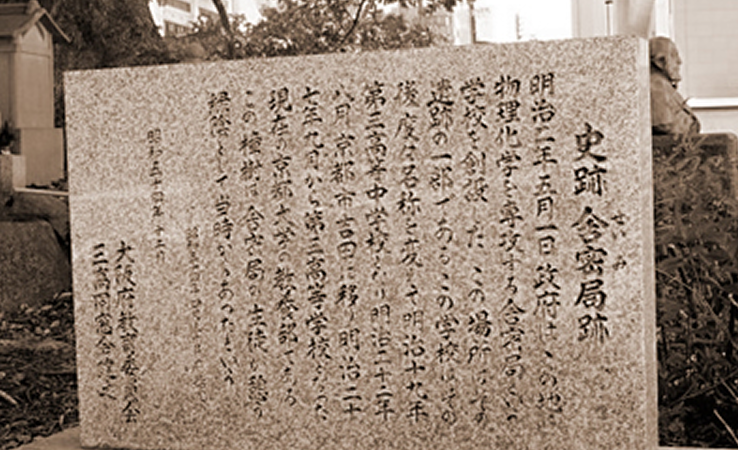 史跡 舎密局跡
せいみ
明治二年五月一日政府はこの地に
物理化学を専攻する舎密局という
学校を創設した この場所はその
遺跡の一部である この学校はその
後度々名称を変えて明治十九年
第三高等中学校となり明治二十二年
八月京都市吉田に移り明治二十
七年九月から第三高等学校となった
現在の京都大学の教養部である
この樟樹は舎密局の生徒が憩う
緑陰として当時からあったという
昭和三十四年十二月
大阪府教育委員会
三高同窓会建之